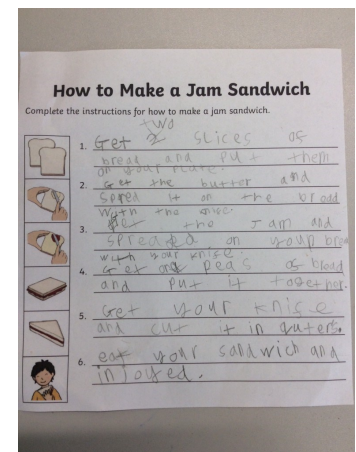 How to Make a Jam Sandwich
Complete the instructions for how to make a jam sandwich.
two
1. Get 2 slices of
bread and put them
on your plate.
2. Get the butter and
spred it on the bread
with the
3. the Jam and
spread on your brea
with your knife.
4. Get peas of bread
and put it together.
5. Get your knife
and cut it in quters.
6. eat your sandwich and
injoyed.